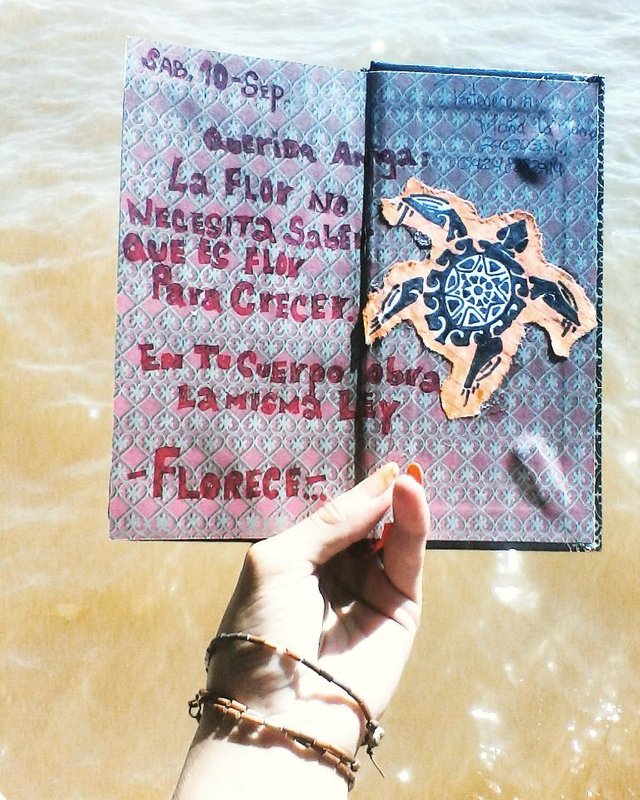 SAB, 10-SEP.
Querida Amiga:
La FLOR NO
NECESITA SabER
QUE ES FLOR
Para CRECER.
En Tu CUERPO obra
La MISMA LEY
-FLORECE...